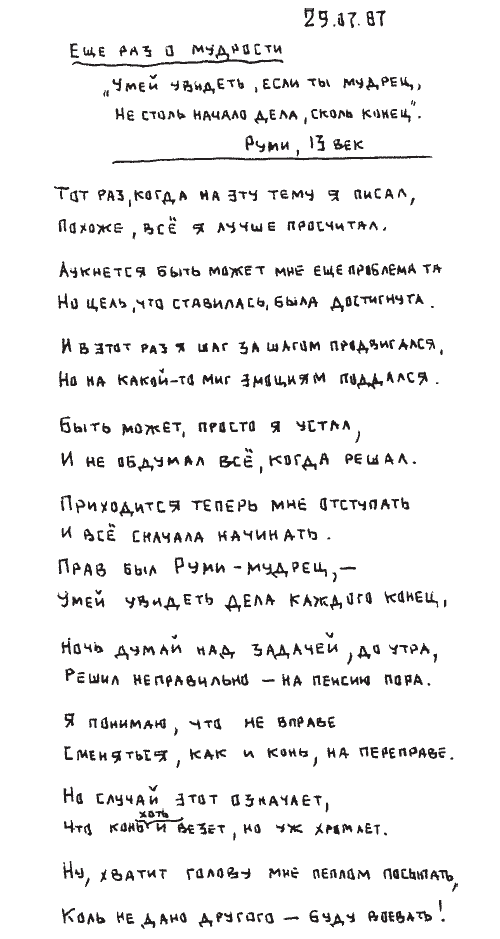 29.07.87
Еще раз о мудрости
„Умей увидеть, если ты мудрец,
Не столь начало дела, сколь конец".
Руми, 13 век
Тот раз, когда на эту тему я писал,
Похоже, всё я лучше просчитал.
Аукнется быть может мне еще проблема та
Но цель, что ставилась, была достигнута.
И в этот раз я шаг за шагом продвигался,
Но на какой-то миг эмоциям поддался.
Быть может, просто я устал,
И не обдумал всё, когда решал.
Приходится теперь мне отступать
И всё сначала начинать.
Прав был Руми - мудрец, —
Умей увидеть дела каждого конец,
Ночь думай над задачей, до утра,
Решил неправильно — на пенсию пора.
Я понимаю, что не вправе
Сменяться, как и конь, на переправе.
Но случай этот означает,
хоть
Что конь и везет, но уж хромает.
Ну, хватит голову мне пеплом посыпать,
Коль не дано другого — буду воевать!